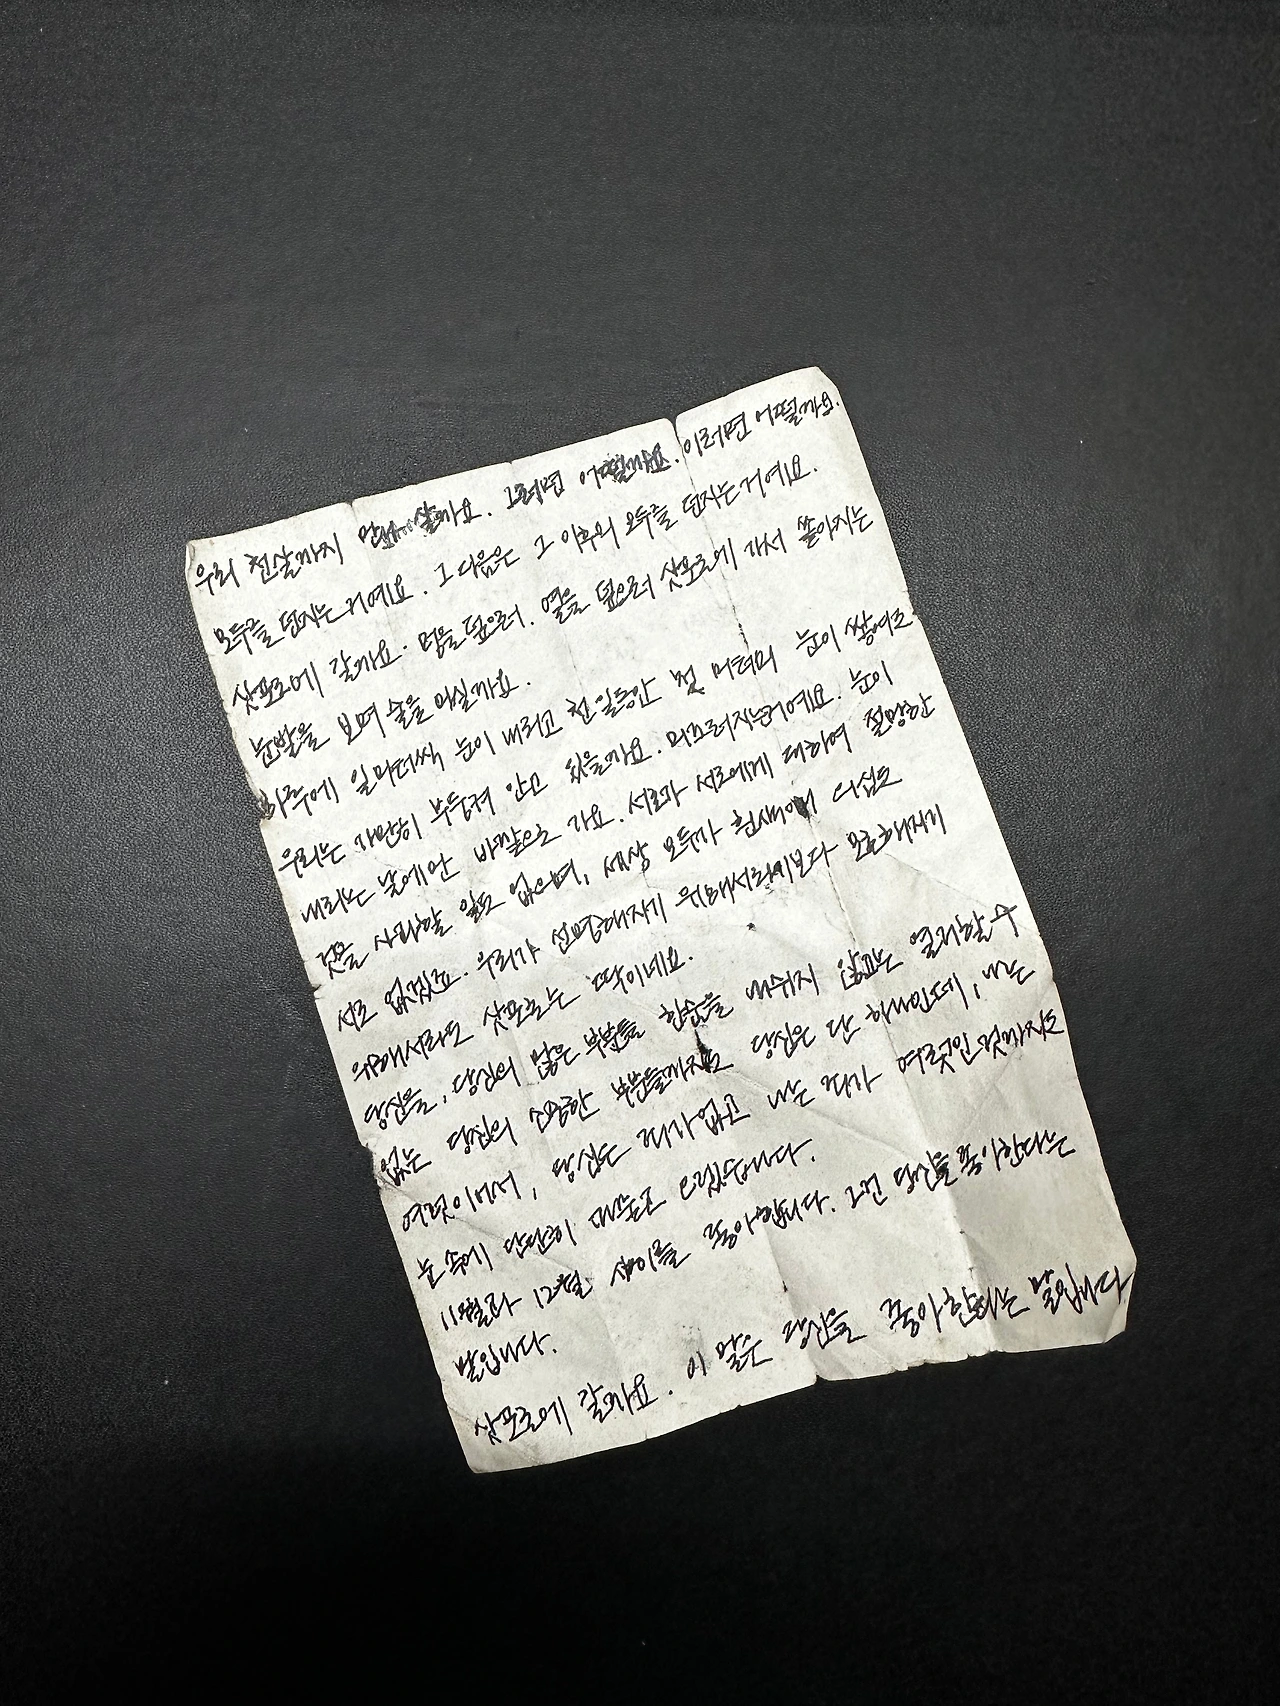 우리 천살까지 맘껏 살까요. 그러면 어떨까요. 이러면 어떨까요.
모두를 던지는거예요. 그 다음은 그 이후의 모두를 던지는거예요.
삿포로에 갈까요. 멍을 덮으러. 열을 덮으러 삿포로에 가서 쏟아지는
눈발을 보며 술을 마실까요.
하루에 일미터씩 눈이 내리고 천일동안 천 미터의 눈이 쌓여도
우리는 가만히 부둥켜 안고 있을까요. 미끄러지는거예요. 눈이
내리는 날에만 바깥으로 가요. 서로가 서로에게 대하여 절망한
것을 사과할 일도 없으며, 세상 모두가 흰색이니 의심도
서로 없겠죠. 우리가 선명해지기 위해서라기보다 모호해지기
위해서라도 삿포로는 딱이네요.
당신을, 당신의 많은 부분들 한숨을 내쉬지 않고는 열거할 수
없는 당신의 소중한 부분들까지도 당신은 단 하나인데, 나는
여럿이어서, 당신은 죄가 없고 나는 죄가 여럿인 것까지도
눈 속에 단단히 파묻고 오겠습니다.
11월과 12월 사이를 좋아합니다. 그건 당신을 좋아한다는
말입니다.
삿포로에 갈까요. 이 말은 당신을 좋아한다는 말입니다